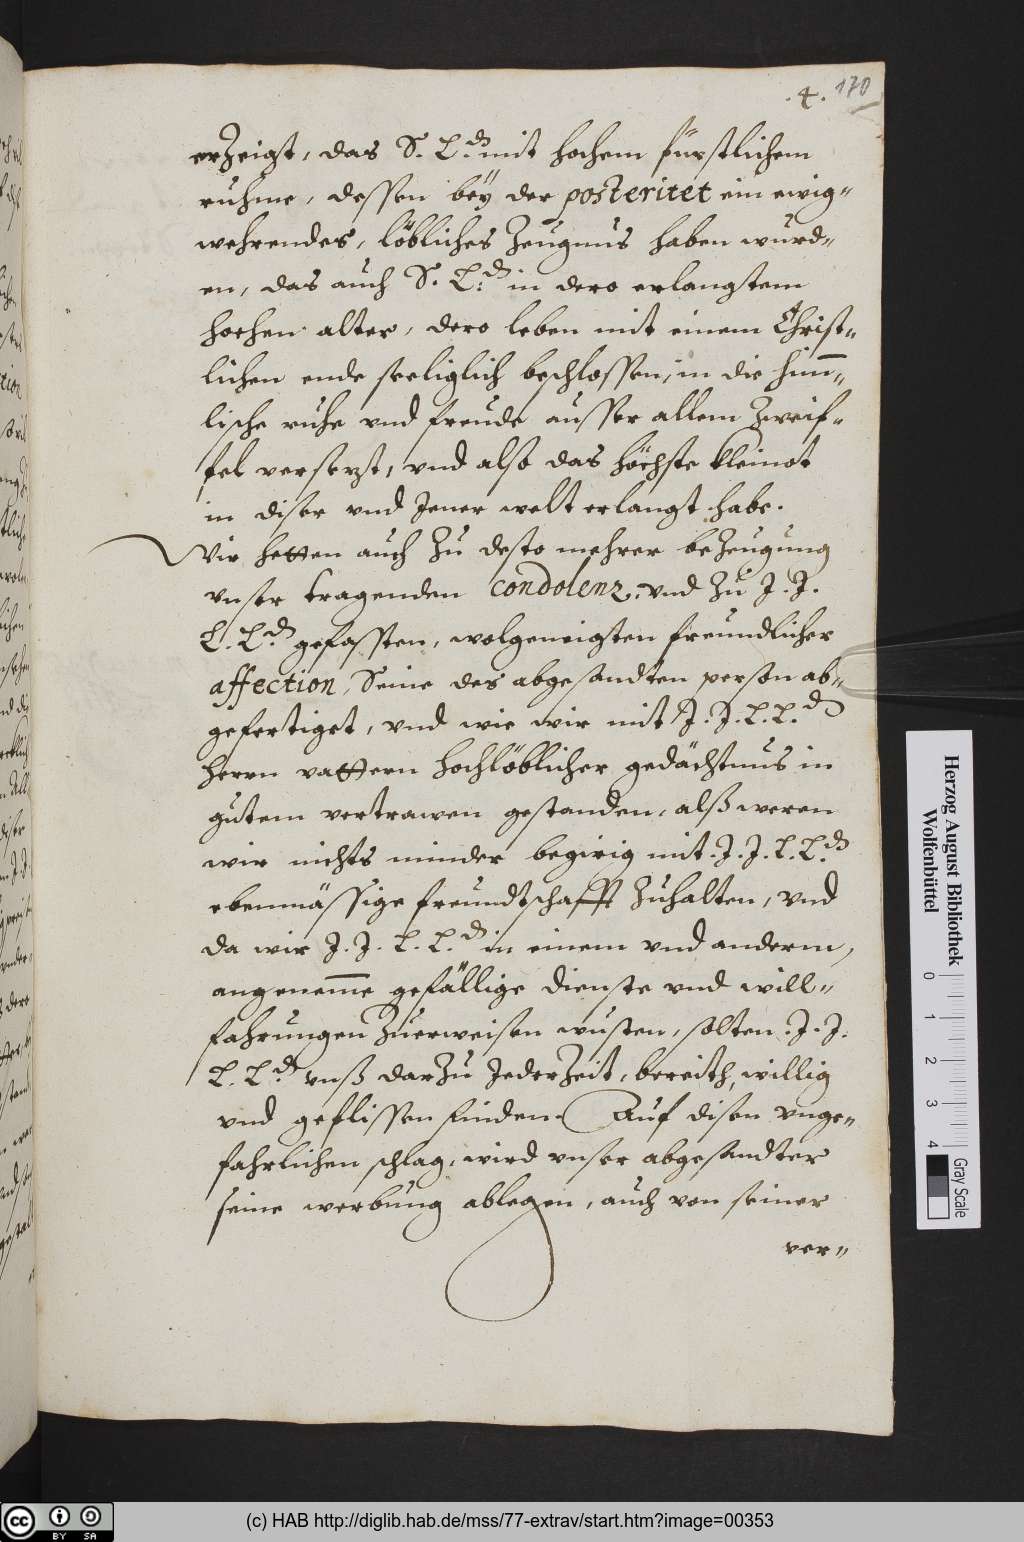 .4. 170
erzeigt, das S. L.den mit hochem fürstlichem
ruhme, dessen beÿ der posteritet ein ewig=
wehrendes, löbliches Zeugnus haben wurd=
en, das auch S. L.den in dero erlangstem
hochen alter, dero leben mit einem Christ=
lichen ende seeliglich beschlossen, in die him̄=
lische ruhe vnd freude ausser allem Zweif=
fel versezt, vnd also das höchste kleinot
in diser vnd Jener welt erlangt habe.
Wir hetten auch Zu desto mehrer beZeugung
vnser tragenden Condolenz, vnd Zu J. J.
L. L.den gefassten, wolgeneigten freundlicher
affection, Seine des abgesandten person ab=
gefertiget, vnd wie wir mit J. J. L. L.den
herrn vattern hochlöblicher gedächtnus in
gutem vertrawen gestanden, alß weren
wir nichts minder begirig mit J. J. L. L.den
ebenmässige freundtschafft Zuhalten, vnd
da wir J. J. L. L.den in einem vnd anderm,
angenem̄e gefällige dienste vnd will=
fahrungen Zuerweisen wusten, solten J. J.
L. L.den vnß darZu JederZeit, bereith, willig
vnd geflissen finden. Auf disen vnge=
fahrlichen schlag, wird vnser abgesandter
seine werbung ablegen, auch von seiner
ver=
Herzog August Bibliothek
Wolfenbüttel
0 1 2 3 4 Gray Scale
cc BY SA
(c) HAB http://diglib.hab.de/mss/77-extrav/start.htm?image=00353